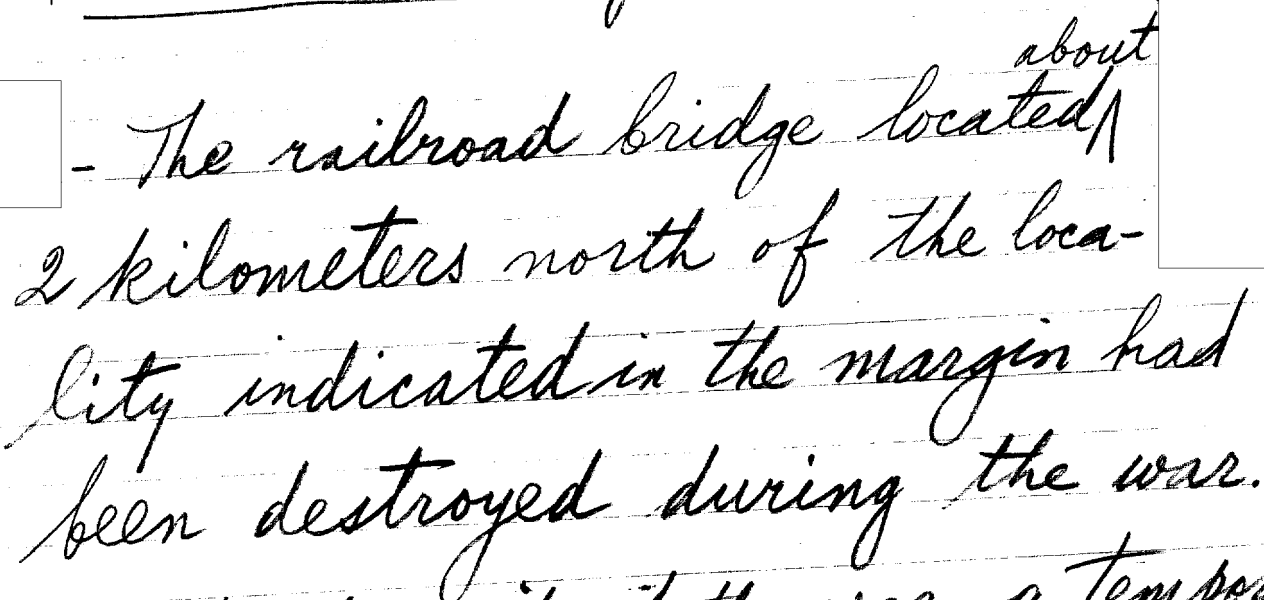 about
- The railroad bridge located ∧
2 kilometers north of the loca-
lity indicated in the margin had
been destroyed during the war.
a tempo